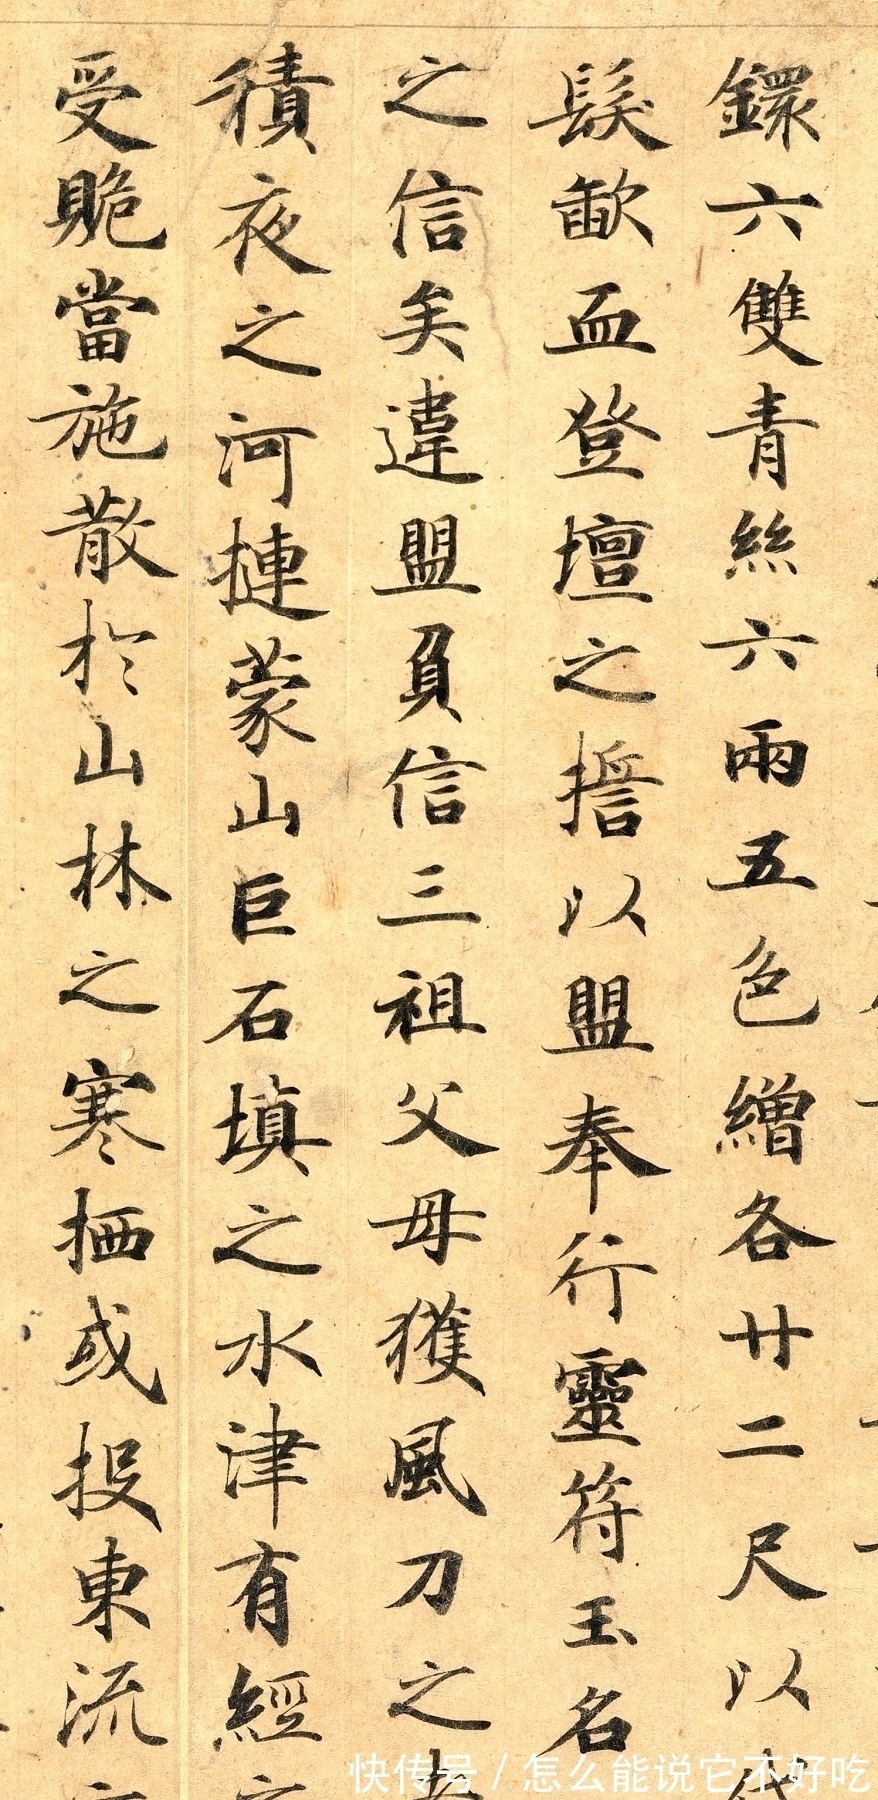 鐶六雙青絲六兩五色繒各廿二尺以代
髮歃血登壇之擔以盟奉行靈符玉名
之信矣違盟負信三祖父母獲風刀之考
積夜之河摙蒙山巨石填之水津有經
受賧當施散於山林之寒栖或投東流
快传号/怎么能说它不好吃